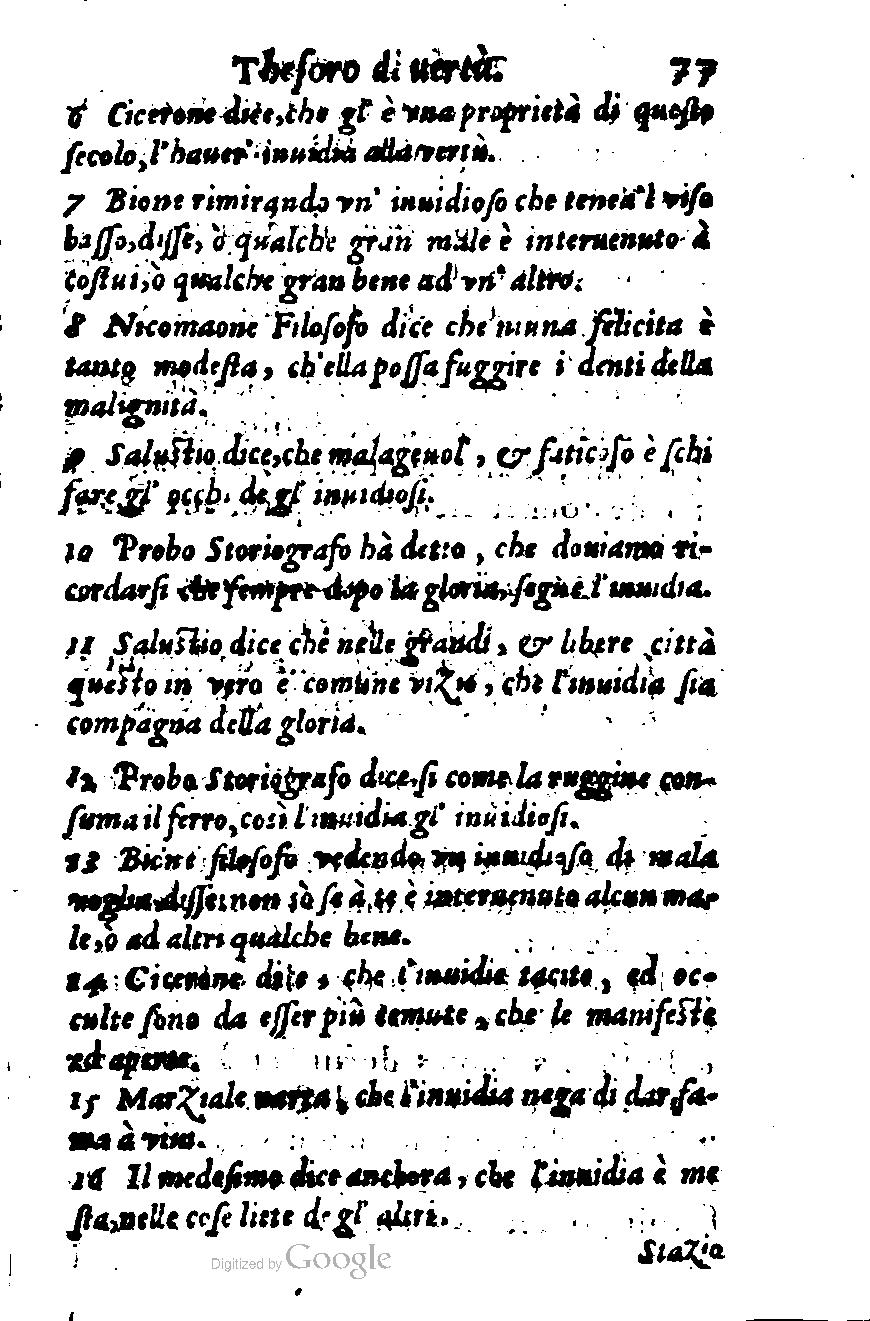 Theſoro di uèrtà. 77
6 Cicerone dice, che gl' è vna proprietà di queſto
ſecolo, l'hauer' inuidia alla vertù.
7 Bione rimirando vn' inuidioſo che tenea'l viſo
baſſo, diſſe, ò qualche gran male è interuenuto à
coſtui, ò qualche gran bene ad vn' altro.
8 Nicomaone Filoſofo dice che niuna felicita è
tanto modeſta, ch'ella poſſa fuggire i denti della
malignità.
9 Saluſtio dice, che malageuol', & faticoſo è ſchi
fare gl' occhi de gl' inuidioſi.
10 Probo Storiografo hà detto, che douiamo ri-
cordarſi che ſempre dopo la gloria, ſegue l'inuidia.
11 Saluſtio dice chè nelle grandi, & libere città
queſto in vero è comune vizio, che l'inuidia ſia
compagna della gloria.
12 Probo Storiografo dice. ſi come la ruggine con-
ſuma il ferro, coſì l'inuidia gl' inuidioſi.
13 Bione filoſofo vedendo vn inuidioſo di mala
voglia diſſe: non sò ſe à te è interuenuto alcun ma-
le, ò ad altri qualche bene.
14 Cicerone dice, che l'inuidie tacite, ed oc-
culte ſono da eſſer più temute, che le manifeſte
ed aperte.
15 Marziale narra, che l'inuidia nega di dar fa-
ma à viui.
16 Il medeſimo dice anchora, che l'inuidia è me
ſta, nelle coſe liete de gl' altri.
Stazio
Digitized by Google